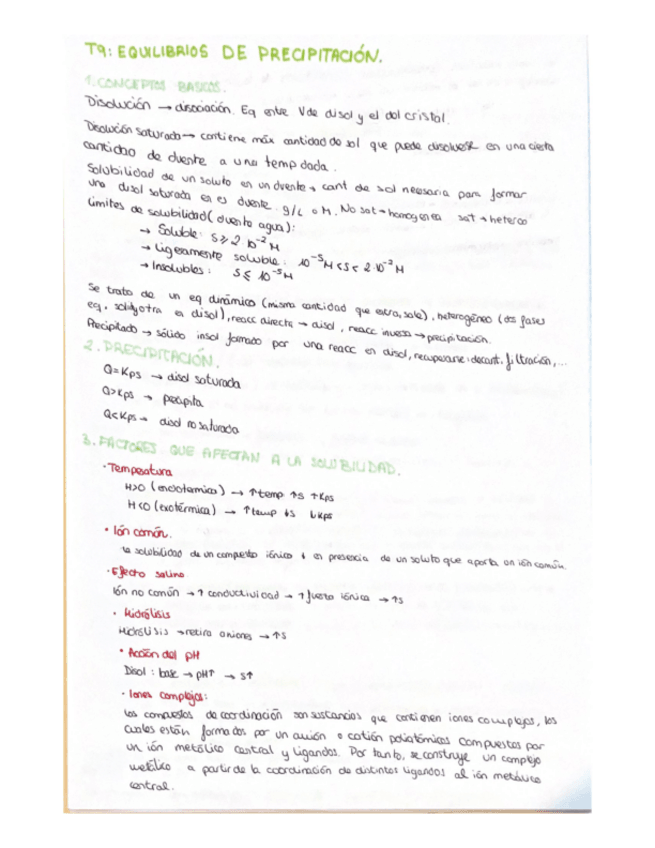 T9: EQUILIBRIOS DE PRECIPITACIÓN.
1. CONCEPTOS BASICOS.
Disolución → disociación. Eq entre V de disol y el del cristal.
Disolución saturada → contiene máx cantidad de sol que puede disolverse en una cierta
cantidad de dvente a una temp dada.
Solubilidad de un soluto en un dvente → cant de sol necesaria para formar
una disol saturada en es dvente. g/L o M. No sat → homogenea sat → heterog
Limites de solubilidad (dvente agua):
→ Soluble: S ≥ 2·10⁻² M
→ Ligeramente soluble: 10⁻⁵ M < S < 2·10⁻² M
→ Insolubles: S ≤ 10⁻⁵ M
Se trata de un eq dinámico (misma cantidad que entra, sale), heterogéneo (dos fases
eq, solid y otra en disol), reacc directa → disol, reacc inversa → precipitación.
Precipitado → sólido insol formado por una reacc en disol, recuperarse: decant. filtración,...
2. PRECIPITACIÓN.
Q=Kps → disol saturada
Q>Kps → precipita
Q<Kps → disol no saturada
3. FACTORES QUE AFECTAN A LA SOLUBILIDAD.
· Temperatura
H>0 (endotermica) → ↑temp ↑s ↑Kps
H<0 (exotérmica) → ↑temp ↓s ↓Kps
· Ión común.
la solubilidad de un compuesto iónico ↓ en presencia de un soluto que aporta un ión común
· Efecto salino
Ión no común → ↑ conductividad → ↑ fuerza iónica → ↑s
· Hidrólisis
Hidrólisis → retira aniones → ↑S
· Acción del pH
Disol: base → pH↑ → s↑
· Iones complejos:
los compuestos de coordinación son sustancias que contienen iones complejos, los
cuales están formados por un anión o catión poliatómicos compuestos por
un ión metálico central y ligandos. Por tanto, se construye un complejo
metálico a partir de la coordinación de distintos ligandos al ión metálico
central.